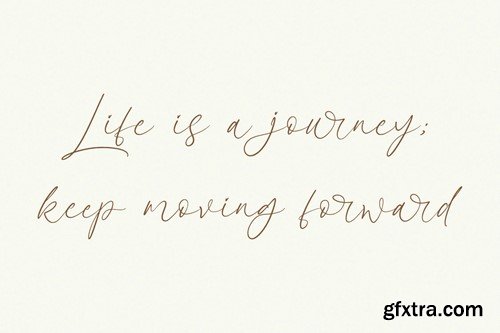 Life is a journey;
keep moving forward
gfxtra.com